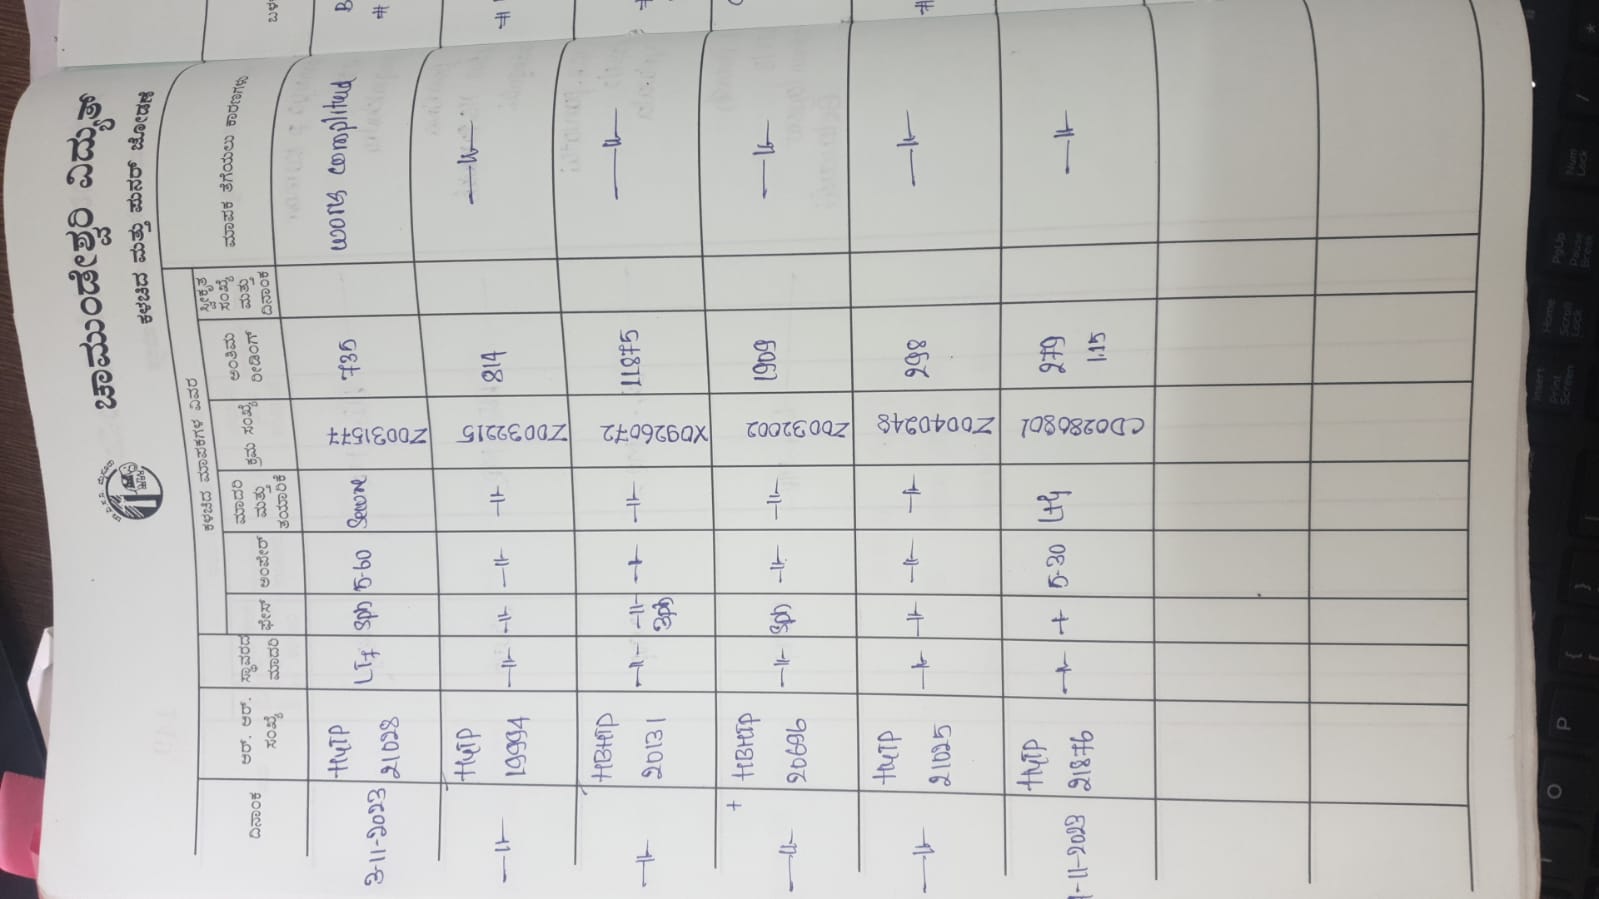 ಚಾಮುಂಡೇಶ್ವರಿ ವಿದ್ಯುತ್
ಕಳಚಿದ ಮತ್ತು ಮನರ್ ಜೋಡಣೆ
ಕಳಚಿದ ಮಾಪಕಗಳ ವಿವರ
ದಿನಾಂಕ ಆರ್. ಆರ್. ಸಂಖ್ಯೆ ಸ್ಥಾವರದ ಮಾದರಿ ಫೇಸ್ ಅಂಪೇರ್ ಮಾದರಿ ಮತ್ತು ತಯಾರಿಕೆ ಕ್ರಮ ಸಂಖ್ಯೆ ಅಂತಿಮ ರೀಡಿಂಗ್ ಸ್ವೀಕೃತ ಸಂಖ್ಯೆ ಮತ್ತು ದಿನಾಂಕ ಮಾಪಕ ತೆಗೆಯಲು ಕಾರಣಗಳು
3-11-2023 HYTP 21028 LT7 3ph 5-60 Secure Z0031577 735 work complited
-11- HYTP 19994 -11- -11- -11- -11- Z0032215 814 -11-
-11- HBHTP 20131 -11- -11- 3ph -11- -11- X0926072 11875 -11-
-11- HBHTP 20696 -11- 3ph -11- -11- Z0032002 1909 -11-
-11- HYTP 21025 -11- -11- -11- -11- Z0040248 298 -11-
-11-2023 HYTP 21876 -11- 5-30 L+G CD0280801 279 1.15 -11-